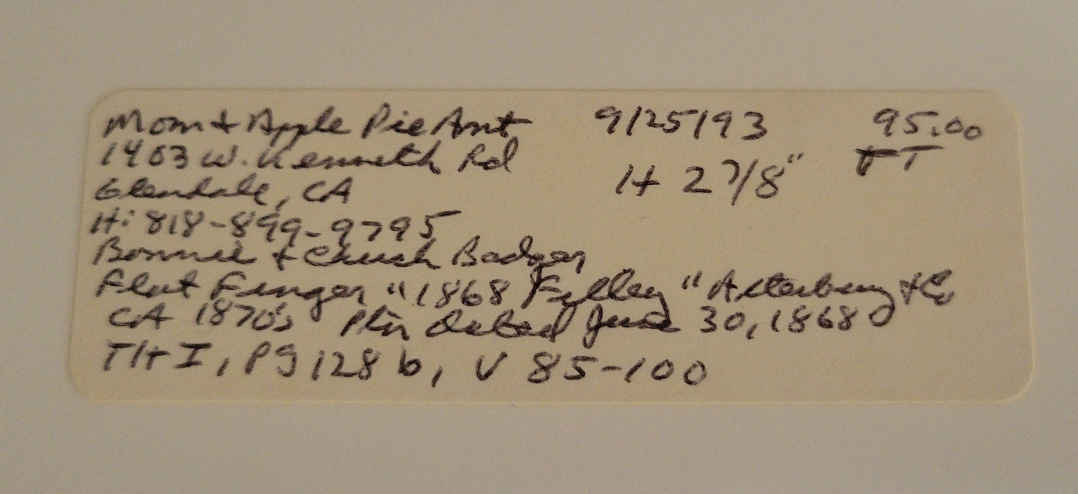 Mom + Apple Pie Ant 9/25/93 95.00
1403 W. Kenneth Rd H 2 7/8" FT
Glendale, CA
H: 818-899-9795
Bonnie + Chuck Badger
Flat Finger "1868 Filley" Atterbury + Co
CA 1870's Ptn dated June 30, 1868
TH I, Pg 128 b, V 85-100